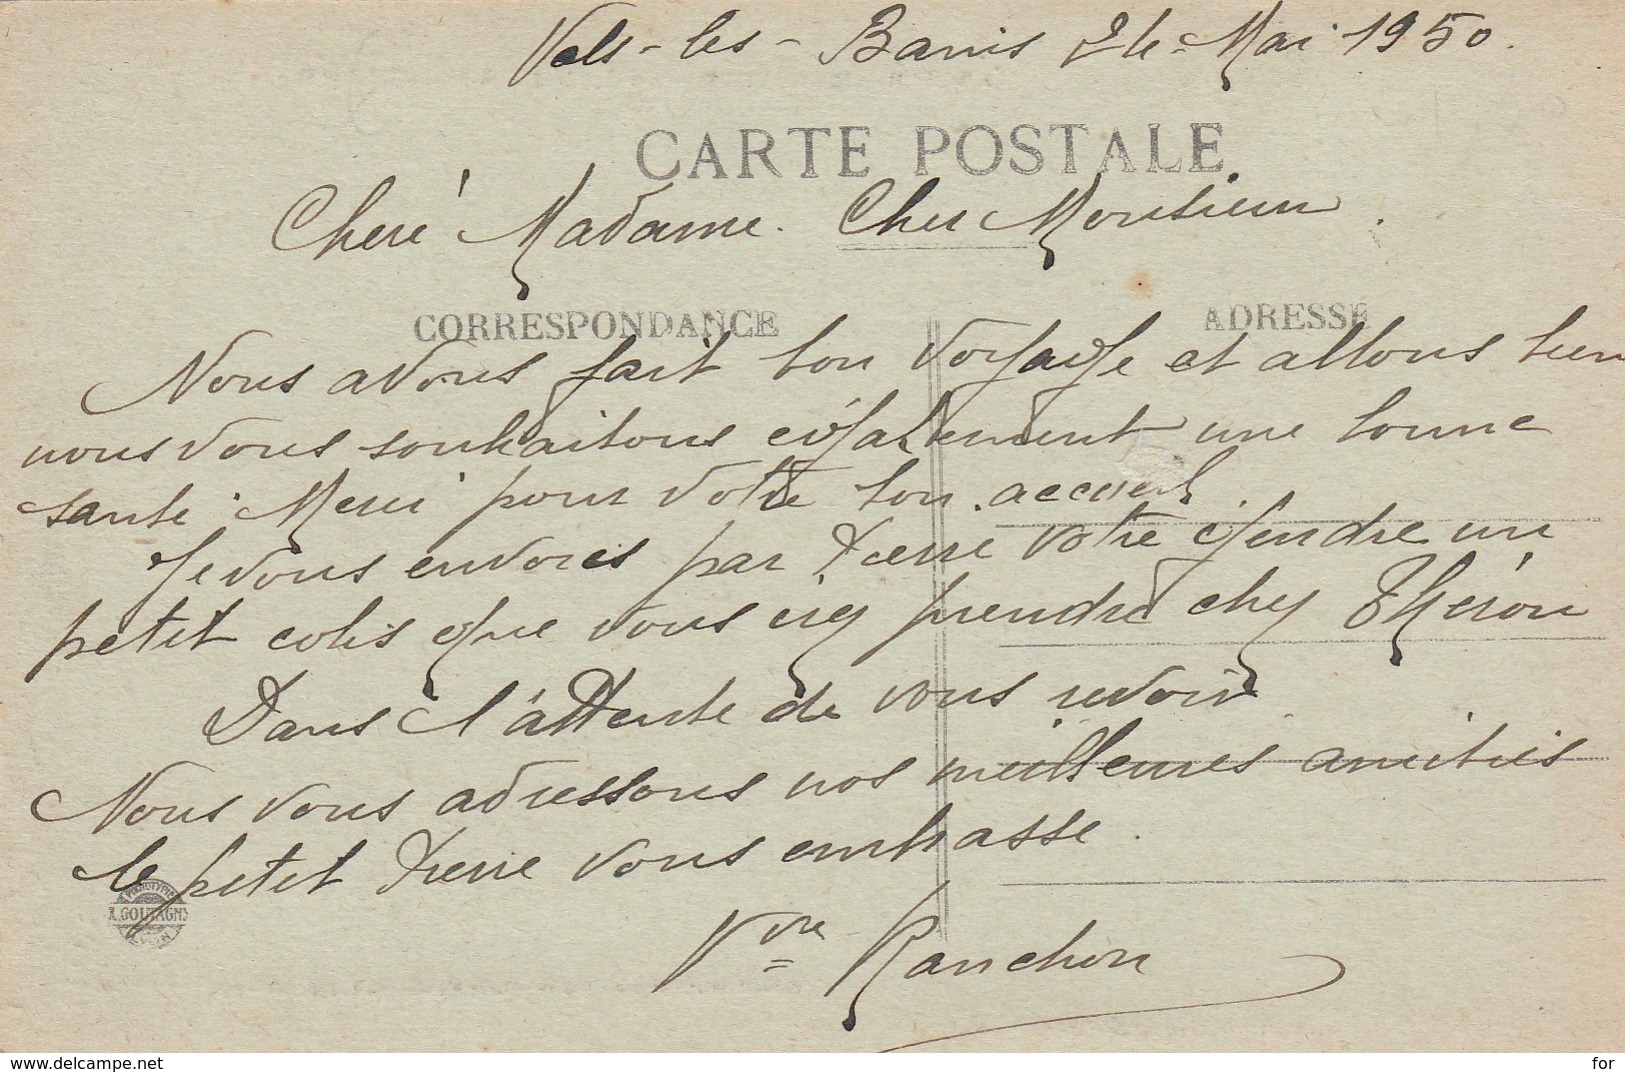 Vals-les-Bains 24 Mai 1950.
CARTE POSTALE
Cheré Madame. Cher Monsieur.
CORRESPONDANCE ADRESSE
Nous avons fait bon voyage et allons bien
nous vous souhaitons également une bonne
santé. Merci pour votre bon accueil.
Je vous envoies par Pierre votre gendre un
petit colis que vous irez prendre chez Théron
Dans l'attente de vous revoir
Nous vous adressons nos meilleures amitiés
le petit Pierre vous embrasse.
A. GOUTAGNY
LYON
Vve Ranchon
www.delcampe.net for